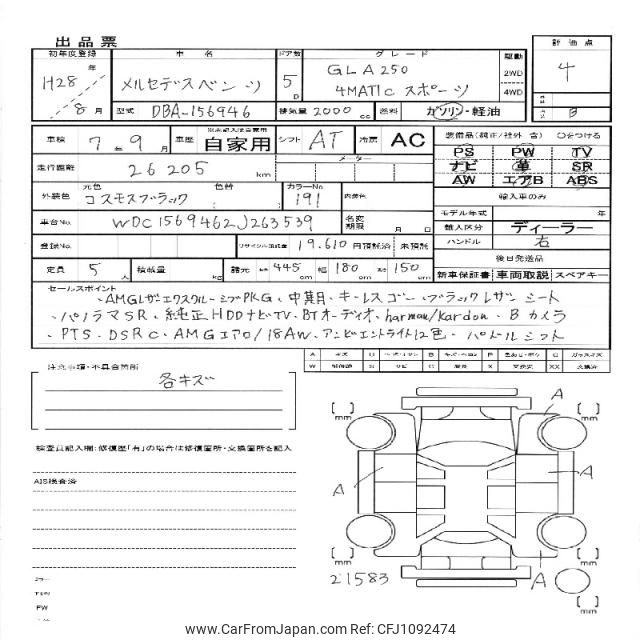 出品票
初年度登録
車名
ドア数
グレード
駆動
評価点
H28年
8月
メルセデスベンツ
5D
GLA250
4MATIC スポーツ
2WD
4WD
4
B
型式 DBA-156946
排気量 2000cc
燃料 ガソリン・軽油
車検 7年9月
車歴 自家用
シフト AT
冷房 AC
走行距離 26205 km
メーター
外装色
元色
コスモスブラック
色替
カラーNo
191
内装色
車台No. WDC1569462J263539
名変期限 月 日
登録No.
リサイクル預託金 19,610円預託済 未預託
定員 5人
積載量 kg
諸元 長さ 445cm 幅 180cm 高さ 150cm
装備品(純正/社外 含) ○をつける
PS PW TV
ナビ 革 SR
AW エアB ABS
輸入車のみ
モデル年式 年
輸入区分 ディーラー
ハンドル 右
後日発送品
新車保証書 車両取説 スペアキー
セールスポイント
・AMGレザーエクスクルーシブPKG、中期目、キーレスゴー・ブラックレザーシート
・パノラマSR、純正HDDナビ・TV、BTオーディオ、harman/kardon、Bカメラ
・PTS、DSRC、AMGエアロ/18AW、アンビエントライト12色・パドルシフト
注意事項・不具合箇所
各キズ
検査員記入欄:修復歴「有」の場合は修復箇所・交換箇所を記入
AIS検査済
[ ]mm
[ ]mm
A
A
A
[ ]mm
[ ]mm
21583
A
[ ]mm
www.CarFromJapan.com - CFJ1092474